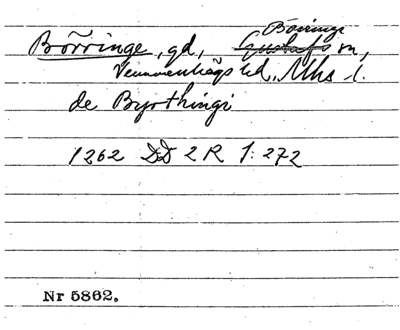 Börringe
Börringe, gd, Gustafs sn,
Vemmenhögs hd, Mhs l.
de Byrthingi
1262 DD 2 R 1:272
Nr 5862.